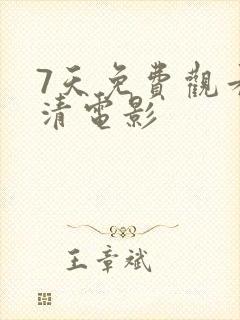 7天免費觀看
清電影
王章斌